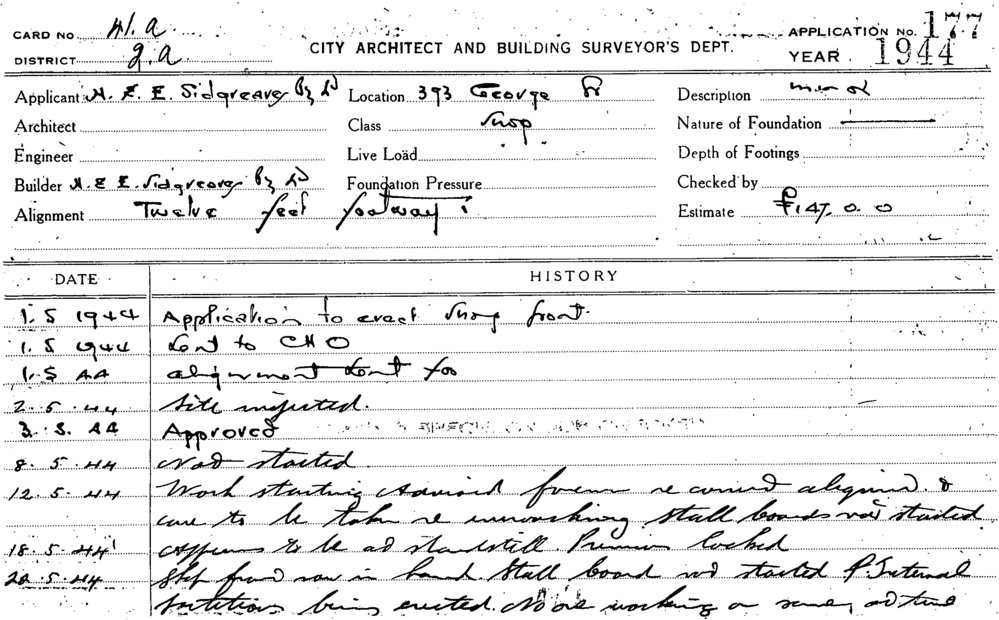 CARD No 41.a
APPLICATION No. 177
DISTRICT g.a
CITY ARCHITECT AND BUILDING SURVEYOR'S DEPT.
YEAR 1944
Applicant N. E. E. Sidgreaves Py Ld Location 393 George St Description minor
Architect Class Shop Nature of Foundation
Engineer Live Load Depth of Footings
Builder N. E E. Sidgreaves Py Ld Foundation Pressure Checked by
Alignment Twelve feet footway Estimate £147. 0. 0
DATE HISTORY
1. 5 1944 Application to erect shop front.
1. 5 1944 Sent to CHO
1. 5 44 alignment sent for
2. 5. 44 Site inspected.
3. 5. 44 Approved
8. 5. 44 Not started
12. 5. 44 Work starting advised re correct &
care to be taken re stall boards not started
18. 5. 44 Appears to be at standstill. Premises locked
20. 5. 44 Shop front now in hand Stall board not started P. Internal
partitions being erected. No one working on same, at time